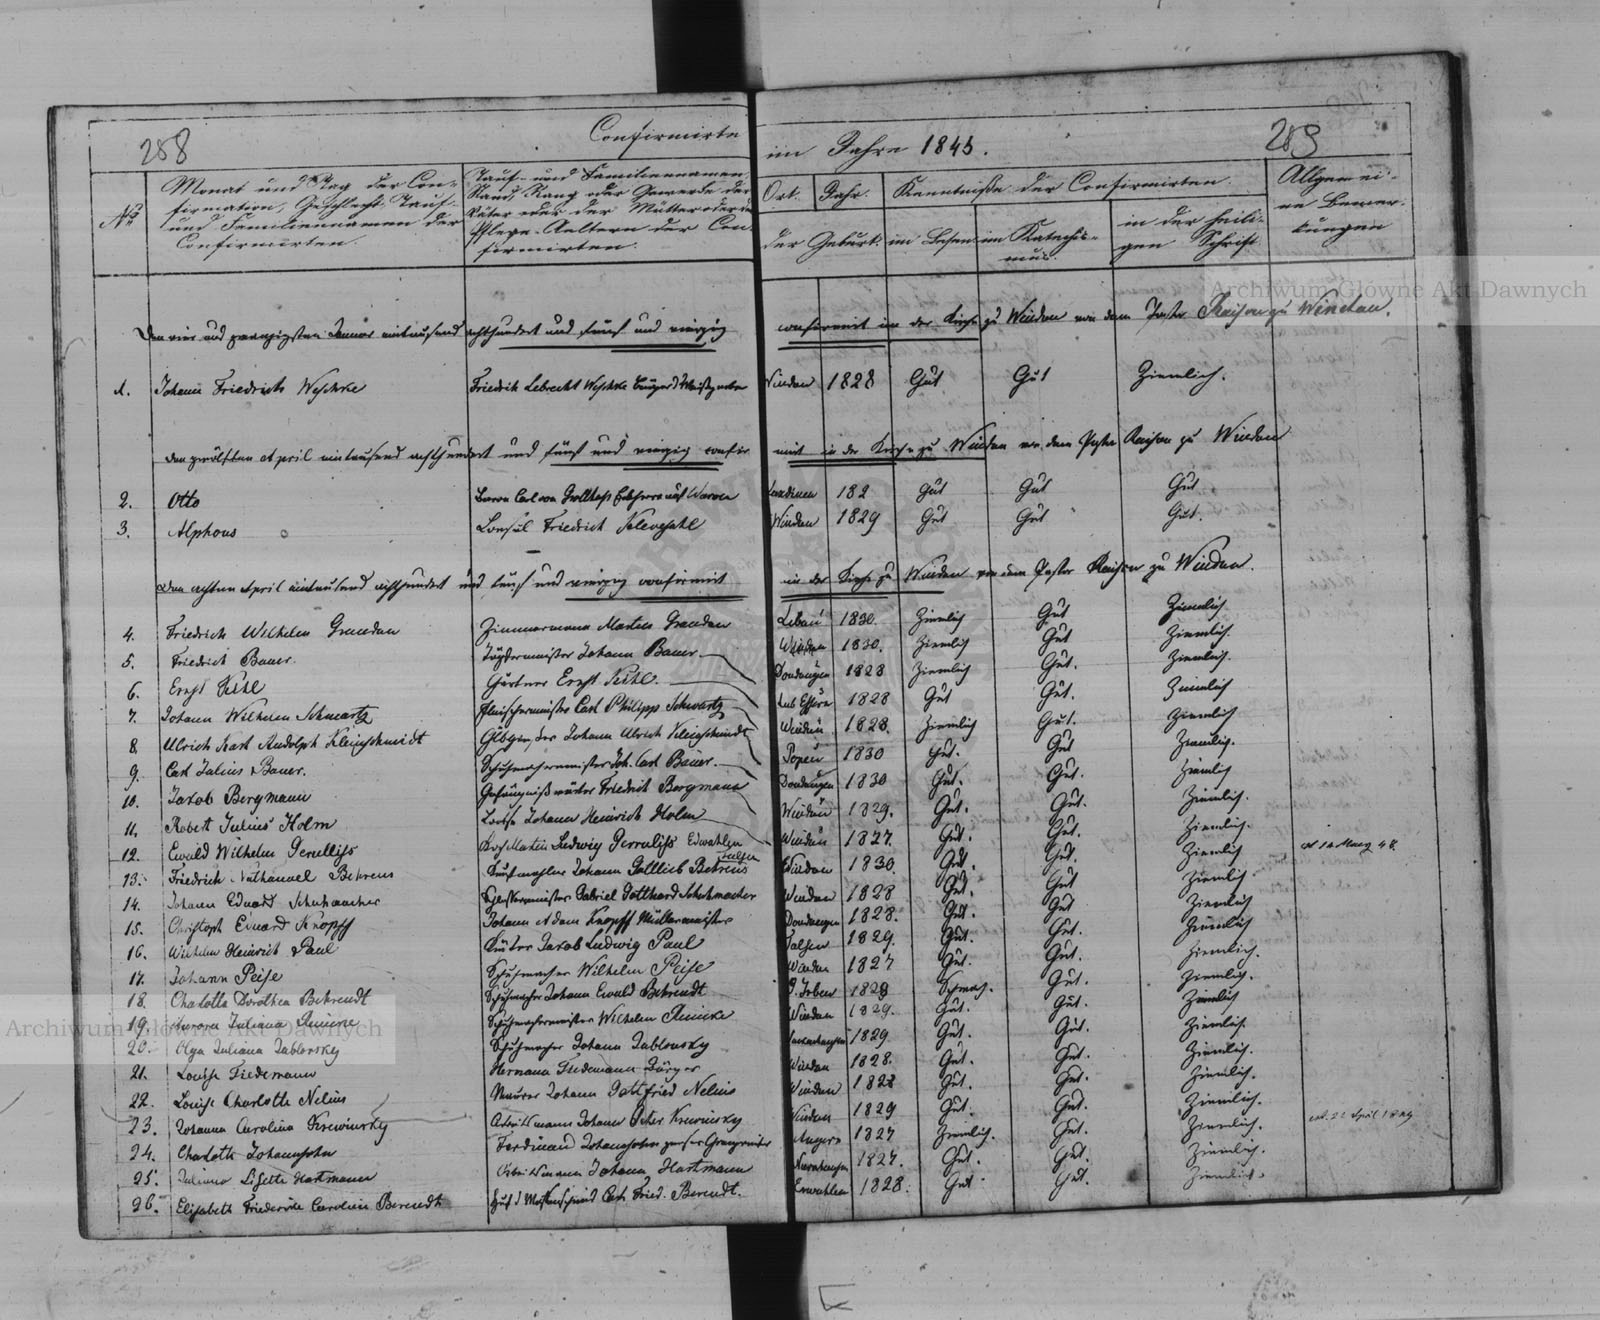 258
Confirmirte
im Jahre 1845.
259
No
Monat und Tag der Con-
firmation, Geschlecht, Tauf-
und Familiennamen der
Confirmirten.
Tauf- und Familiennamen,
Stand, Rang oder Gewerbe der
Väter oder der Mütter oder der
Pflege-Aeltern der Con-
firmirten.
Ort Jahr.
der Geburt.
Kenntniße der Confirmirten.
im Lesen
im Katechis-
mus.
in der heili-
gen Schrift
Allgemei-
ne Bemer-
kungen
Archiwum Główne Akt Dawnych
Den vier und zwanzigsten Januar eintausend achthundert und fünf und vierzig confirmirt in der Kirche zu Windau von dem Pastor zu Windau.
1. Johann Friedrich Weschke Friedrich Lebrecht Weschke Windau 1828 Gut Gut Ziemlich.
den zwölften April eintausend achthundert und fünf und vierzig confir mirt in der Kirche zu Windau von dem Pastor zu Windau
2. Otto Baron Carl von 182 Gut Gut Gut
3. Alphons Consul Friedrich Windau 1829 Gut Gut Gut.
Den achten April eintausend achthundert und fünf und vierzig confirmirt in der Kirche zu Windau von dem Pastor zu Windau.
4. Friedrich Wilhelm Grandau Zimmermann Martin Grandau Libau 1830. Ziemlich Gut Ziemlich
5. Friedrich Bauer. Johann Bauer Windau 1830. Ziemlich Gut Ziemlich.
6. Ernst Kehl Gärtner Ernst Kehl. Dondangen 1828 Ziemlich Gut. Ziemlich.
7. Johann Wilhelm Schwartz Fleischermeister Carl Philipp Schwartz 1828 Gut Gut. Ziemlich
8. Ulrich Karl Rudolph Kleinschmidt Johann Ulrich Kleinschmidt Windau 1828. Ziemlich Gut. Ziemlich
9. Carl Julius Bauer. Schuhmachermeister Joh. Carl Bauer. Popen 1830 Gut. Gut Ziemlich.
10. Jacob Bergmann Gefängnißwärter Friedrich Bergmann Dondangen 1830 Gut. Gut. Ziemlich
11. Robert Julius Holm Lootse Johann Heinrich Holm Windau 1829. Gut. Gut. Ziemlich.
12. Ewald Wilhelm Martin Ludwig Windau 1827. Gut. Gut. Ziemlich.
13. Friedrich Nathanael Behrens Johann Gottlieb Behrens Windau 1830. Gut. Gut. Ziemlich
14. Johann Eduard Schuhmacher Gabriel Gotthard Schuhmacher Windau 1828 Gut. Gut Ziemlich.
15. Christoph Eduard Knopff Johann Adam Knopff Müllermeister Dondangen 1828. Gut. Gut Ziemlich
16. Wilhelm Heinrich Paul Jacob Ludwig Paul Talsen 1829. Gut. Gut. Ziemlich
17. Johann Peise Schuhmacher Wilhelm Peise Windau 1827 Gut. Gut. Ziemlich.
18. Charlotta Dorothea Behrendt Schuhmacher Johann Ewald Behrendt 1829 Schwach. Gut. Ziemlich.
19. Aurora Juliana Reinicke Schuhmachermeister Wilhelm Reinicke Windau 1829. Gut. Gut. Ziemlich
20. Olga Juliana Jablonsky Schuhmacher Johann Jablonsky 1829 Gut. Gut. Ziemlich.
Archiwum Główne Akt Dawnych
21. Louise Tiedemann Hermann Tiedemann Windau 1828. Gut. Gut. Ziemlich.
22. Louise Charlotte Nelius Maurer Johann Gottfried Nelius Windau 1828 Gut. Gut. Ziemlich.
23. Johanna Carolina Krewinsky Arbeitsmann Johann Peter Krewinsky Windau 1829 Gut. Gut. Ziemlich.
24. Charlotte Johannsohn Ferdinand Johannsohn 1827 Ziemlich. Gut. Ziemlich.
25. Lisette Hartmann Arbeitsmann Johann Hartmann 1827. Gut. Gut. Ziemlich.
26. Elisabeth Friederike Caroline Berendt Carl Fried. Berendt. Erwahlen 1828. Gut. Gut. Ziemlich.